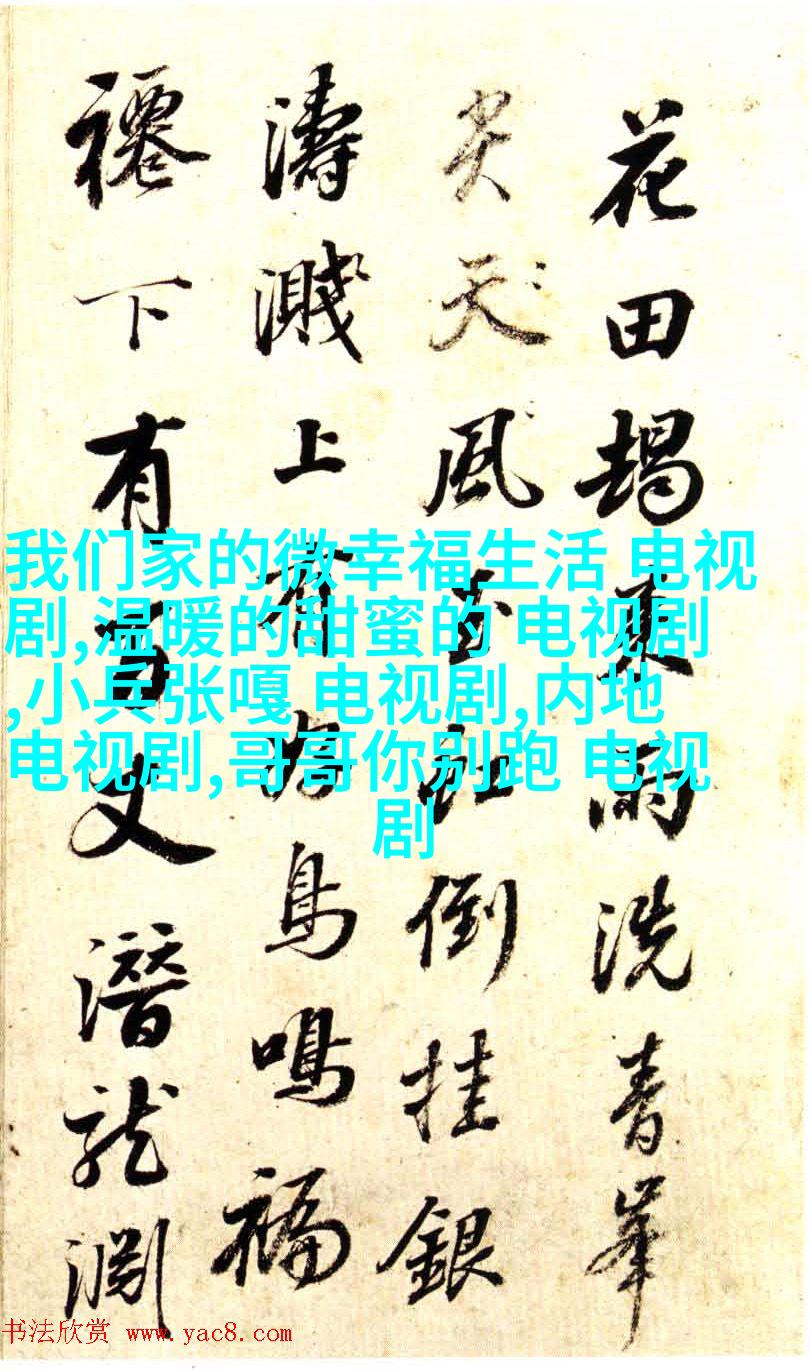 花田朅來雨洗青峯
尖天風虹倒挂銀
濤濺上有珍鳥鳴福
下有百丈潛龍淵
我们家的微幸福生活 电视
剧,温暖的甜蜜的 电视剧
,小兵张嘎 电视剧,内地
电视剧,哥哥你别跑 电视
剧
书法欣赏 www.yac8.com